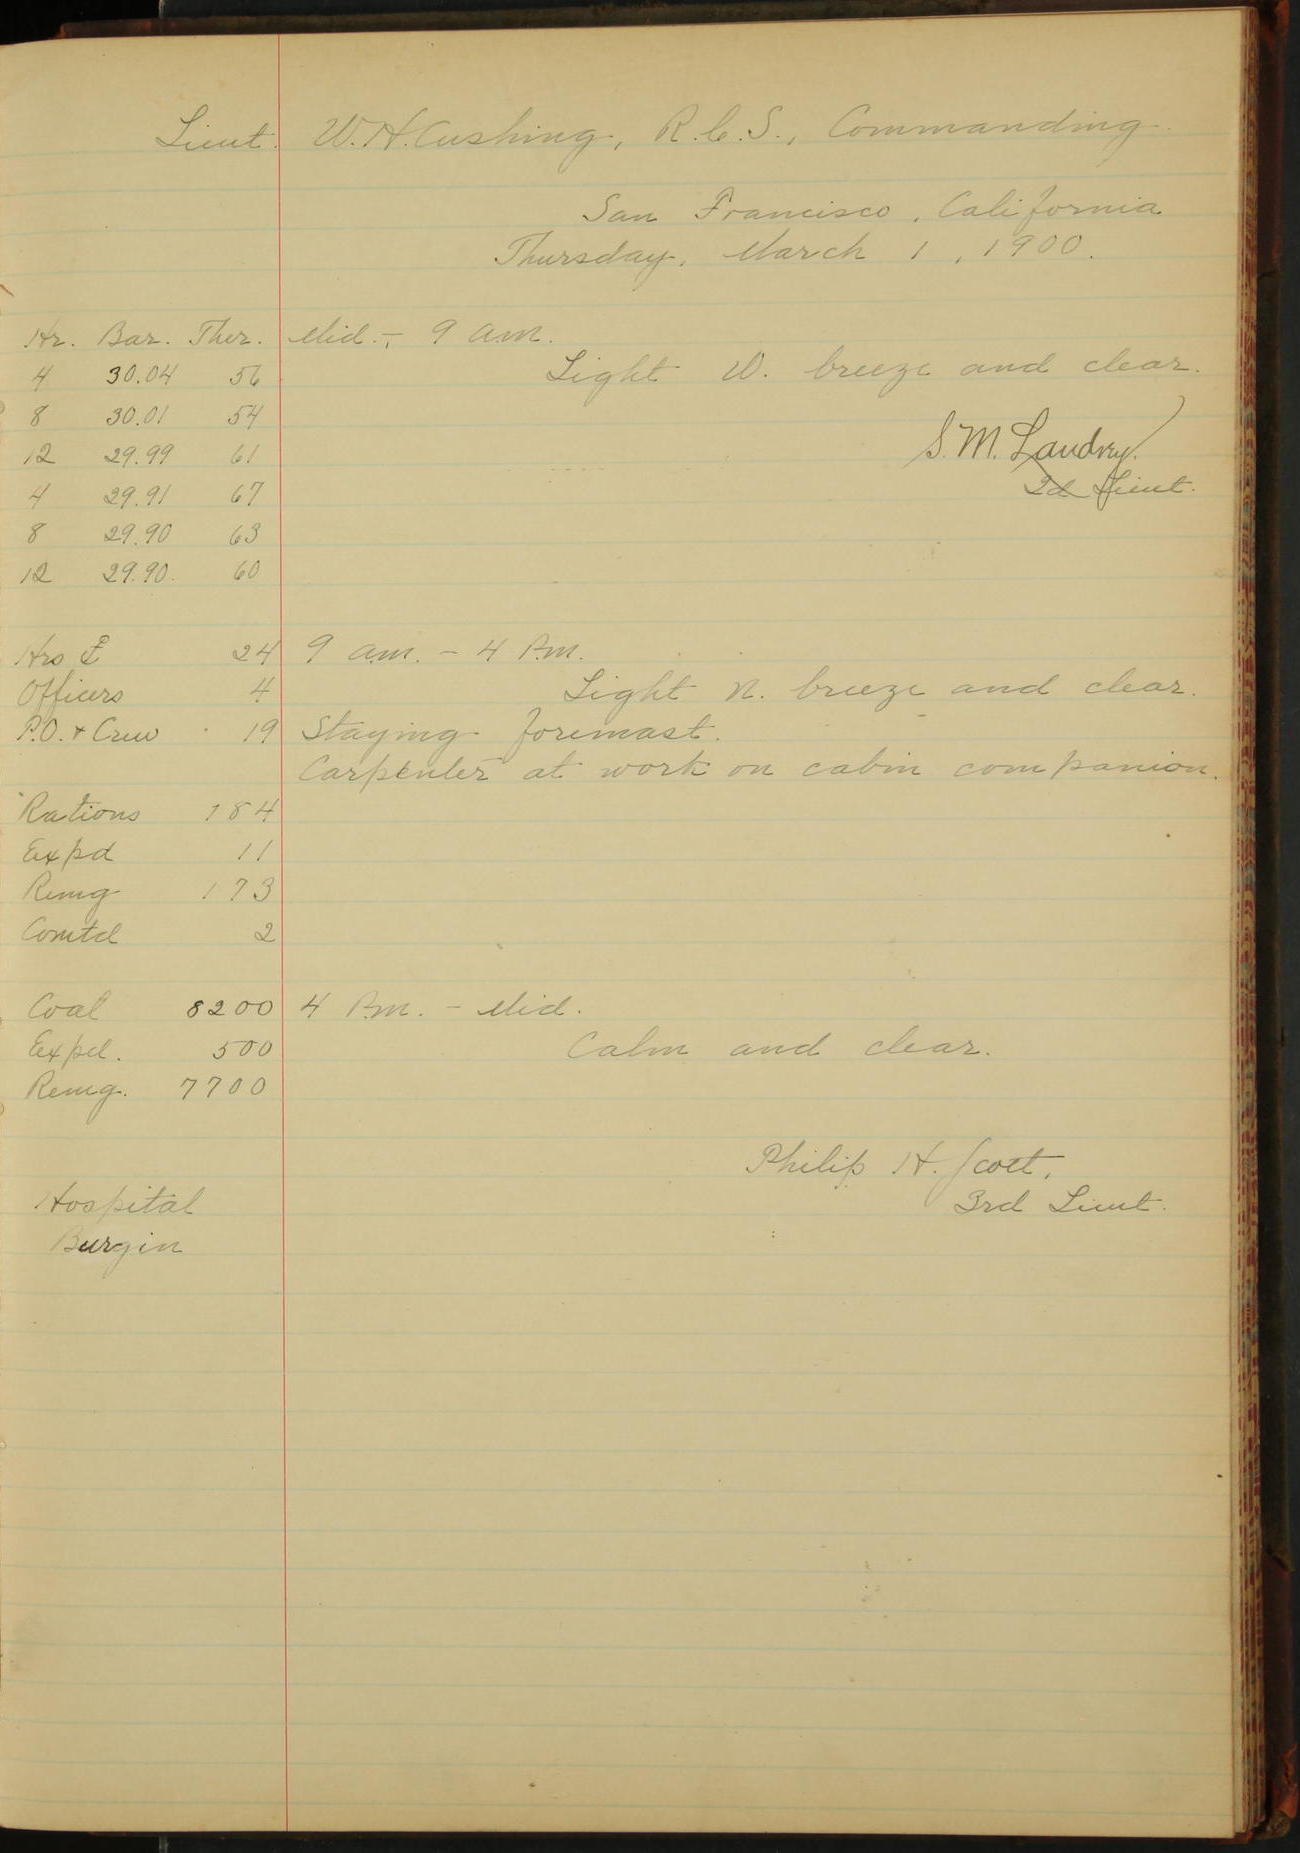 Lieut. W.H. Cushing, R.C.S., Commanding.
San Francisco, California
Thursday, March 1, 1900.
Hr. Bar. Ther. Mid.-, 9 a.m.
4 30.04 56 Light W. breeze and clear.
8 30.01 54
S.M. Landry.
12 29.99 61
2d Lieut.
4 29.91 67
8 29.90 63
12 29.90. 60
Hrs 24 9 a.m. - 4 P.m.
Officers 4 Light N. breeze and clear.
P.O. + Crew 19 Staying foremast.
Carpenter at work on cabin companion.
Rations 184
Expd 11
Remg 173
Comtd 2
Coal 8200 4 P.m. - Mid.
Expd. 500 Calm and clear.
Remg. 7700
Philip H. Scott,
Hospital 3rd Lieut.
Burgin